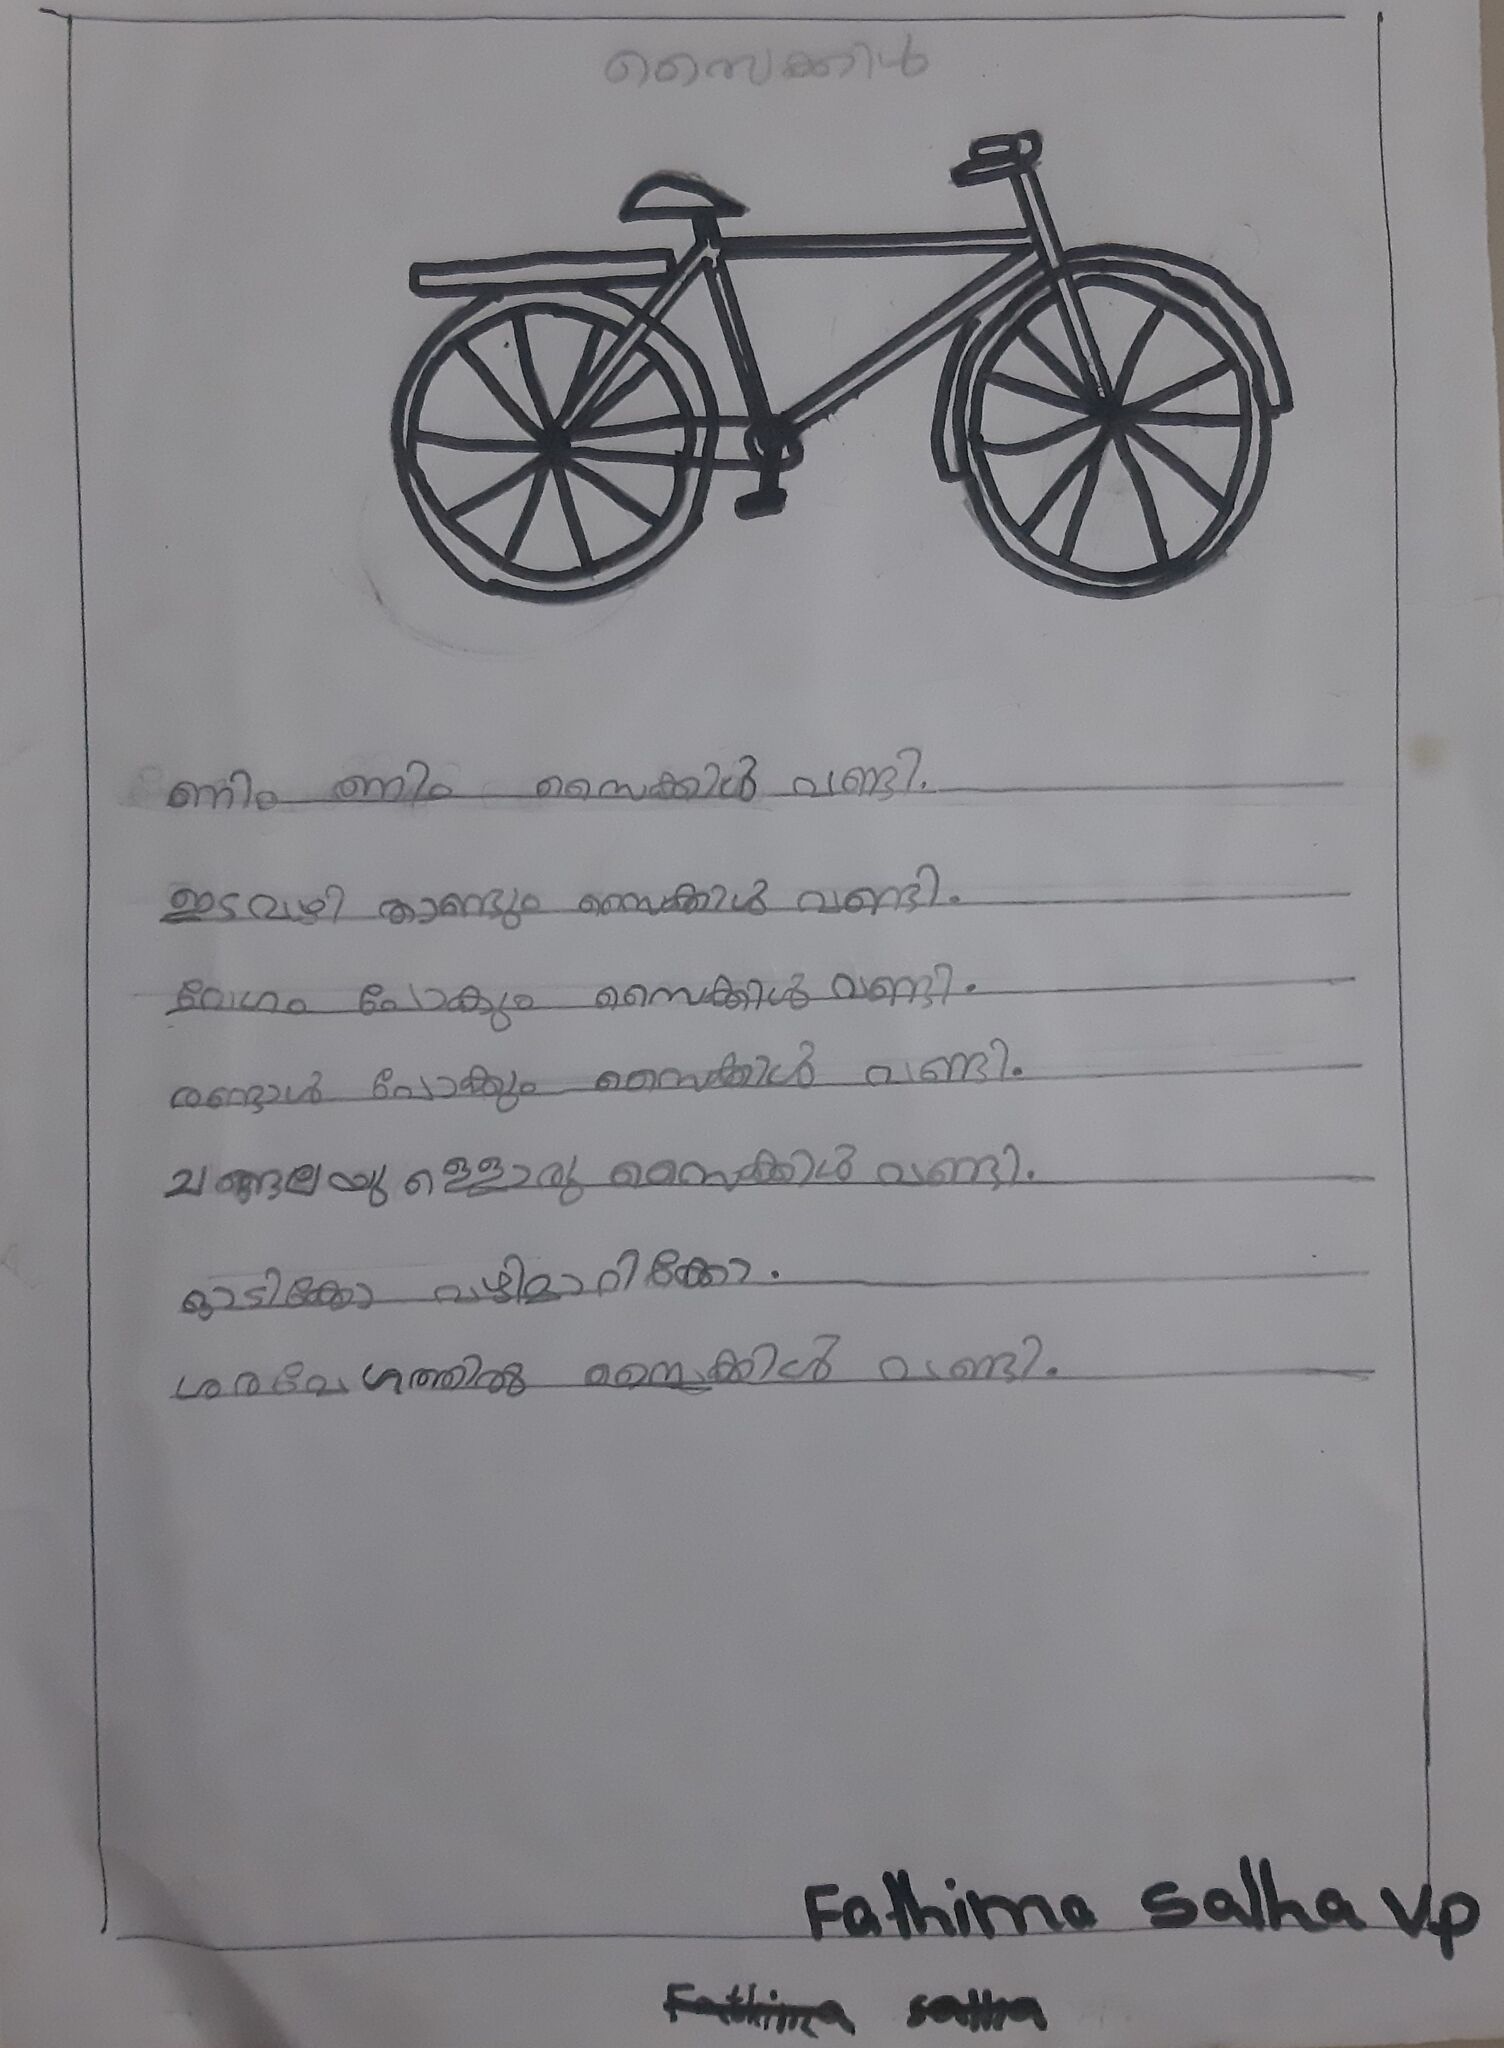 സൈക്കിൾ
ണിം ണിം സൈക്കിൾ വണ്ടി.
ഇടവഴി താണ്ടും സൈക്കിൾ വണ്ടി.
വേഗം പോകും സൈക്കിൾ വണ്ടി.
രണ്ടാൾ പോക്കും സൈക്കിൾ വണ്ടി.
ചങ്ങലയുള്ളൊരു സൈക്കിൾ വണ്ടി.
ഓടിക്കോ വഴിമാറിക്കോ.
ശരവേഗത്തിൽ സൈക്കിൾ വണ്ടി.
Fathima Salha VP
Fathima salha